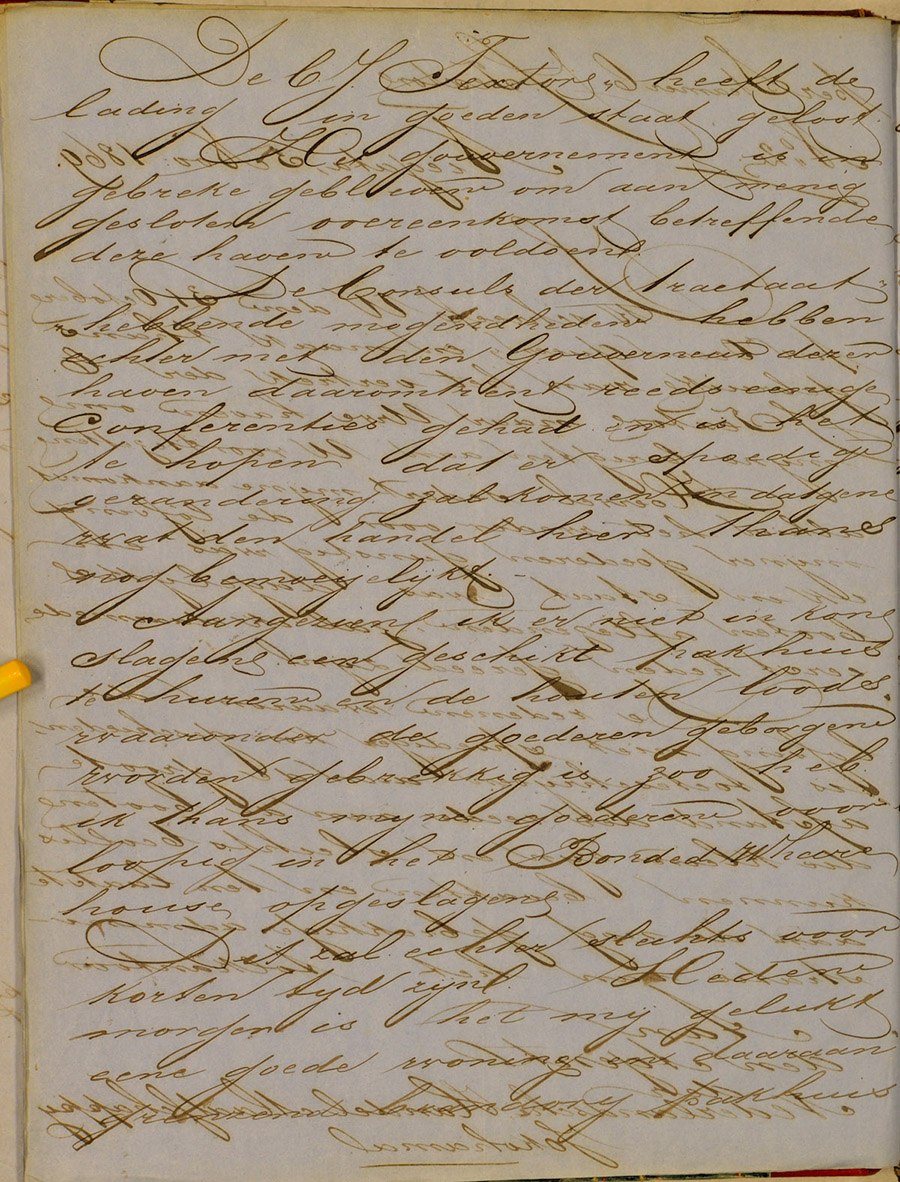 De C. J. Textors heeft de
lading in goeden staat gelost.
Het gouvernement is in
gebreke gebleven om aan menig
gesloten overeenkomst betreffende
deze haven te voldoen.
De Consuls der tractaat
hebbende mogendheden hebben
echter met den Gouverneur dezer
haven daaromtrent reeds eenige
Conferenties gehad en is het
te hopen dat er spoedig
verandering zal komen in datgene
wat den handel hier thans
nog bemoeyelykt.
Aangezien ik er niet in kon
slagen een geschikt pakhuis
te huren en de houten loods
waaronder de goederen geborgen
worden gebrekkig is zoo heb
ik thans myne goederen voor
loopig in het Bonded Wheare
house opgeslagen.
Dit zal echter slechts voor
korten tyd zyn. Heden
morgen is het my gelukt
eene goede woning en daaraan
brandvry pakhuis